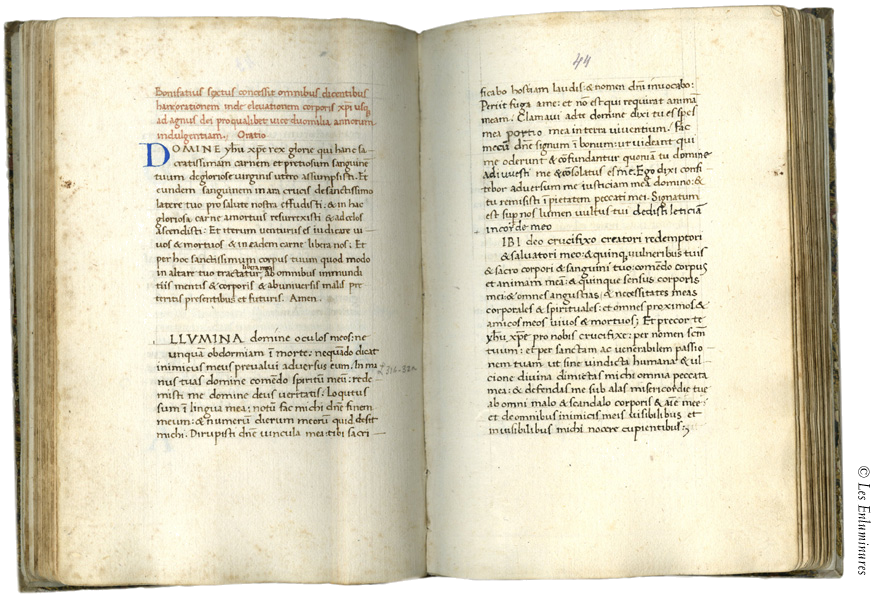 Bonifatius sextus concessit omnibus dicentibus
hanc orationem inde elevationem corporis xpi usq
ad agnus dei pro qualibet vice duomilia annorum
indulgentiam. Oratio
DOMINE yhu xpe rex glorie qui hanc sa
cratissimam carnem et pretiosum sanguine
tuum de gloriose virginis utero assumpsisti. Et
eundem sanguinem in ara crucis de sanctissimo
latere tuo pro salute nostra effudisti: & in hac
gloriosa carne a mortuis resurrexisti & ad celos
ascendisti: Et iterum venturus es iudicare vi
vos & mortuos & in eadem carne libera nos: Et
per hoc sanctissimum corpus tuum quod modo
libera me
in altare tuo tractatur, ab omnibus inmundi
tiis mentis & corporis & ab universis malis pre
teritis presentibus et futuris. Amen.
LLUMINA domine oculos meos: ne
unquā obdormiam ī morte: nequādo dicat
inimicus meus prevalui adversus eum. In ma
nus tuas domine comēdo spiritū meū: rede
misti me domine deus veritatis. Loqutus
sum ī lingua mea: notū fac michi dn̄e finem
meum: & numerū dierum meorū quid desit
michi. Dirupisti dn̄e vincula mea: tibi sacri
44
ficabo hostiam laudis: & nomen dn̄i invocabo:
Periit fuga a me: et nō est qui requirat animā
meam. Clamavi ad te domine dixi tu es spes
mea portio mea in terra viventium. Fac
mecū dn̄e signum ī bonum: ut videant qui
me oderunt & cōfundantur quoniā tu domine
adiuvesti me & cōsolatus es me. Ego dixi confi
tebor adversum me iusticiam meā domino: &
tu remisisti ī pietatem peccati mei. Signatum
est sup nos lumen vultus tui dedisti leticiā
in corde meo
IBI deo crucifixo creatori redemptori
& salvatori meo: & quinq vulneribus tuis
& sacro corpori & sanguini tuo: comēdo corpus
et animam meā: & quinque sensus corporis
mei: & omnes angustias: & necessitates meas
corporales & spirituales: et omnes proximos &
amicos meos vivos & mortuos: Et precor te
yhū xp̄e pro nobis crucifixe: per nomen scm
tuum: et per sanctam ac venerabilem passio
nem tuam ut sine vindicta humana & ul
cione divina dimictas michi omnia peccata
mea: & defendas me sub alas misericordie tue
ab omni malo & scandalo corporis & aīe mee:
et de omnibus inimicis meis visibilibus et
invisibilibus michi nocere cupientibus:
© Les Enluminures